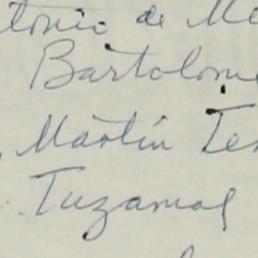 tonio de Me
Bartolome
Martín Te
Tuzamal